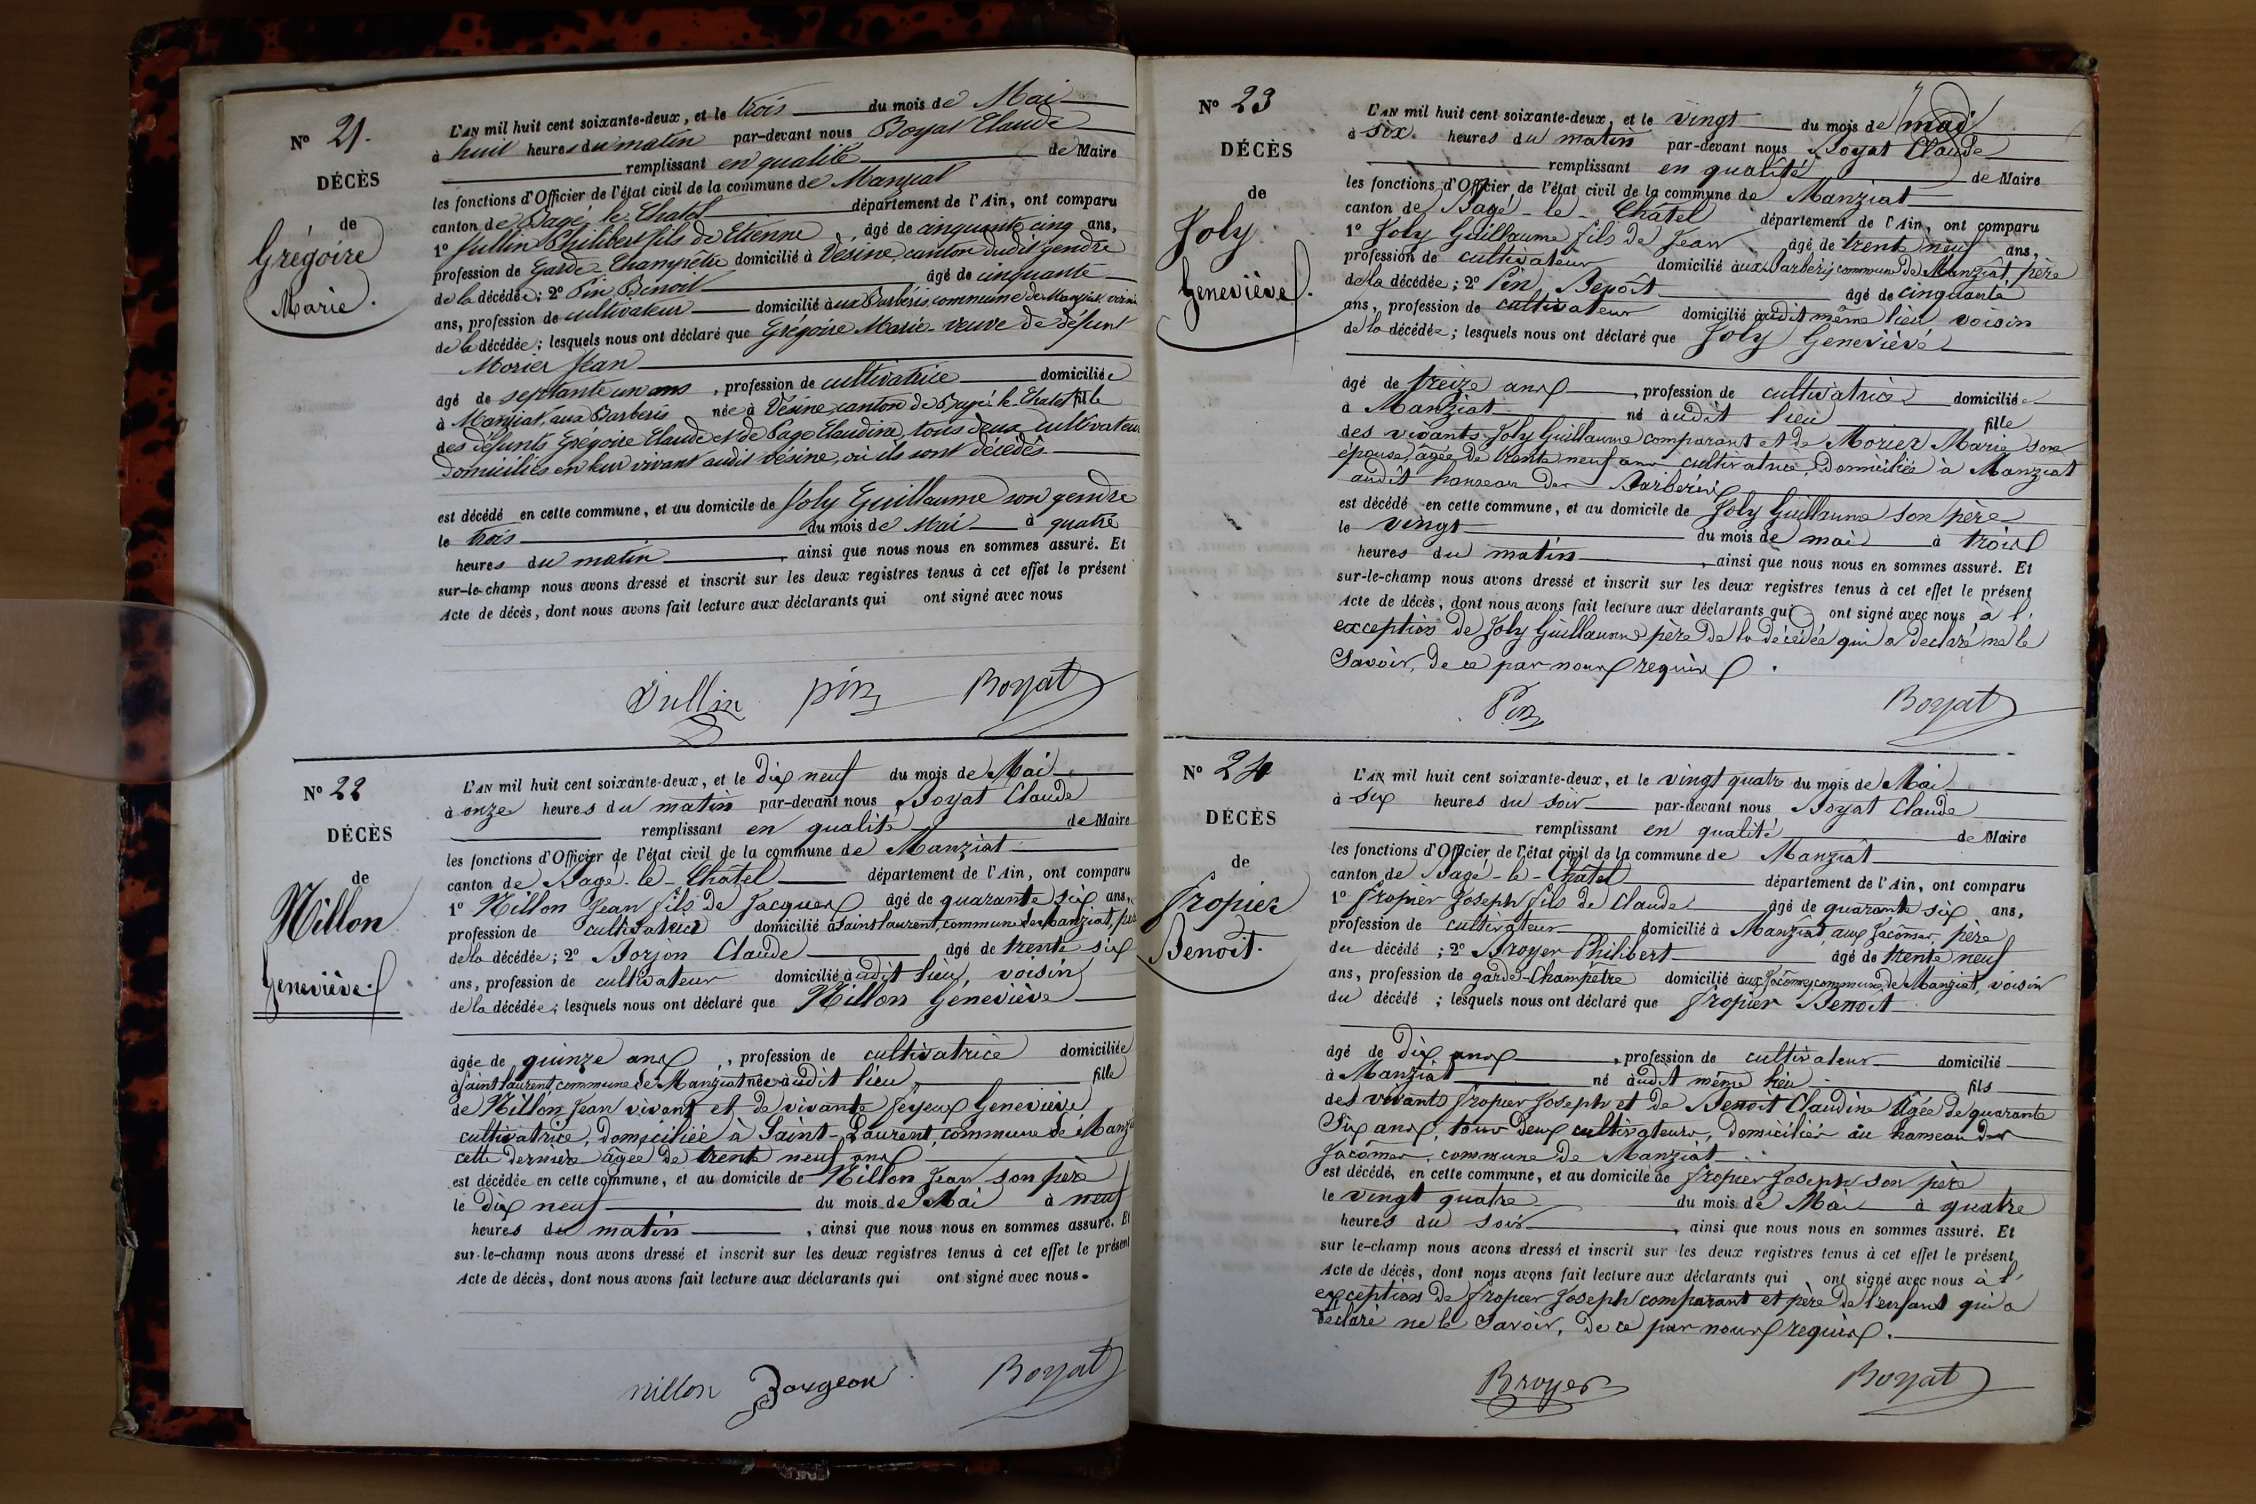 N° 21.
DÉCÈS
de
Grégoire
Marie.
L'AN mil huit cent soixante-deux, et le trois du mois de Mai
à huit heures du matin par-devant nous Boyat Claude
remplissant en qualité de Maire
les fonctions d'Officier de l'état civil de la commune de Manziat
canton de Bagé-le-Chatel département de l'Ain, ont comparu
1° Jullin Philibert fils de Etienne âgé de cinquante cinq ans,
profession de Garde-Champêtre domicilié à Vésine, canton dudit gendre
de la décédée; 2° Pin Benoit âgé de cinquante
ans, profession de cultivateur domicilié aux Barbéris, commune de Manziat, voisin
de la décédée; lesquels nous ont déclaré que Grégoire Marie veuve de défunt
Morier Jean
âgé de septante un ans, profession de cultivatrice domiciliée
à Manziat, aux Barberis née à Vésine, canton de Bagé-le-Chatel fille
des défunts Grégoire Claude et de Page Claudine, tous deux cultivateurs
domiciliés en leur vivant audit Vésine, où ils sont décédés
est décédé en cette commune, et au domicile de Joly Guillaume son gendre
le trois du mois de Mai à quatre
heures du matin, ainsi que nous nous en sommes assuré. Et
sur-le-champ nous avons dressé et inscrit sur les deux registres tenus à cet effet le présent
Acte de décès, dont nous avons fait lecture aux déclarants qui ont signé avec nous
Jullin pin Boyat
N° 22
DÉCÈS
de
Nillon
Geneviève.
L'AN mil huit cent soixante-deux, et le dix neuf du mois de Mai
à onze heures du matin par-devant nous Boyat Claude
remplissant en qualité de Maire
les fonctions d'Officier de l'état civil de la commune de Manziat
canton de Bagé-le-Chatel département de l'Ain, ont comparu
1° Nillon Jean fils de Jacques âgé de quarante six ans,
profession de cultivateur domicilié à Saint Laurent, commune de Manziat, père
de la décédée; 2° Borjon Claude âgé de trente six
ans, profession de cultivateur domicilié audit lieu, voisin
de la décédée; lesquels nous ont déclaré que Nillon Geneviève
âgée de quinze ans, profession de cultivatrice domiciliée
à Saint Laurent, commune de Manziat née audit lieu, fille
de Nillon Jean vivant et de vivante Feyeux Geneviève
cultivatrice, domiciliée à Saint-Laurent, commune de Manzi
cette dernière âgée de trente neuf ans
est décédée en cette commune, et au domicile de Nillon Jean son père
le dix neuf du mois de Mai à neuf
heures du matin, ainsi que nous nous en sommes assuré. Et
sur-le-champ nous avons dressé et inscrit sur les deux registres tenus à cet effet le présent
Acte de décès, dont nous avons fait lecture aux déclarants qui ont signé avec nous.
nillon Bourgeon Boyat
N° 23
DÉCÈS
de
Joly
Geneviève.
L'AN mil huit cent soixante-deux, et le vingt du mois de mai
à six heures du matin par-devant nous Boyat Claude
remplissant en qualité de Maire
les fonctions d'Officier de l'état civil de la commune de Manziat
canton de Bagé-le-Châtel département de l'Ain, ont comparu
1° Joly Guillaume fils de Jean âgé de trente neuf ans,
profession de cultivateur domicilié aux Barberis commune de Manziat, père
de la décédée; 2° Pin Benoît âgé de cinquante
ans, profession de cultivateur domicilié audit même lieu, voisin
de la décédée; lesquels nous ont déclaré que Joly Geneviève
âgé de treize ans, profession de cultivatrice domiciliée
à Manziat né audit lieu fille
des vivants Joly Guillaume comparant et de Morier Marie son
épouse, âgée de trente neuf ans cultivatrice, domiciliée à Manziat
audit hameau des Barbéris
est décédé en cette commune, et au domicile de Joly Guillaume son père
le vingt du mois de mai à trois
heures du matin, ainsi que nous nous en sommes assuré. Et
sur-le-champ nous avons dressé et inscrit sur les deux registres tenus à cet effet le présent
Acte de décès, dont nous avons fait lecture aux déclarants qui ont signé avec nous, à l'
exception de Joly Guillaume père de la décédée qui a déclaré ne le
Savoir, de ce par nous requis.
Pin Boyat
N° 24
DÉCÈS
de
Fropier
Benoit.
L'AN mil huit cent soixante-deux, et le vingt quatre du mois de Mai
à six heures du soir par-devant nous Boyat Claude
remplissant en qualité de Maire
les fonctions d'Officier de l'état civil de la commune de Manziat
canton de Bagé-le-Châtel département de l'Ain, ont comparu
1° Fropier Joseph fils de Claude âgé de quarante six ans,
profession de cultivateur domicilié à Manziat, aux Jacômes, père
du décédé; 2° Broyer Philibert âgé de trente neuf
ans, profession de garde-Champêtre domicilié aux Jacômes, commune de Manziat, voisin
du décédé; lesquels nous ont déclaré que Fropier Benoit
âgé de dix ans, profession de cultivateur domicilié
à Manziat né audit même lieu fils
des vivants Fropier Joseph et de Benoit Claudine âgée de quarante
Six ans, tous deux cultivateurs, domiciliés au hameau des
Jacômes, commune de Manziat
est décédé, en cette commune, et au domicile de Fropier Joseph son père
le vingt quatre du mois de Mai à quatre
heures du soir, ainsi que nous nous en sommes assuré. Et
sur le-champ nous avons dressé et inscrit sur les deux registres tenus à cet effet le présent
Acte de décès, dont nous avons fait lecture aux déclarants qui ont signé avec nous à l'
exception de Fropier Joseph comparant et père de l'enfant qui a
déclaré ne le Savoir, de ce par nous requis.
Broyer Boyat